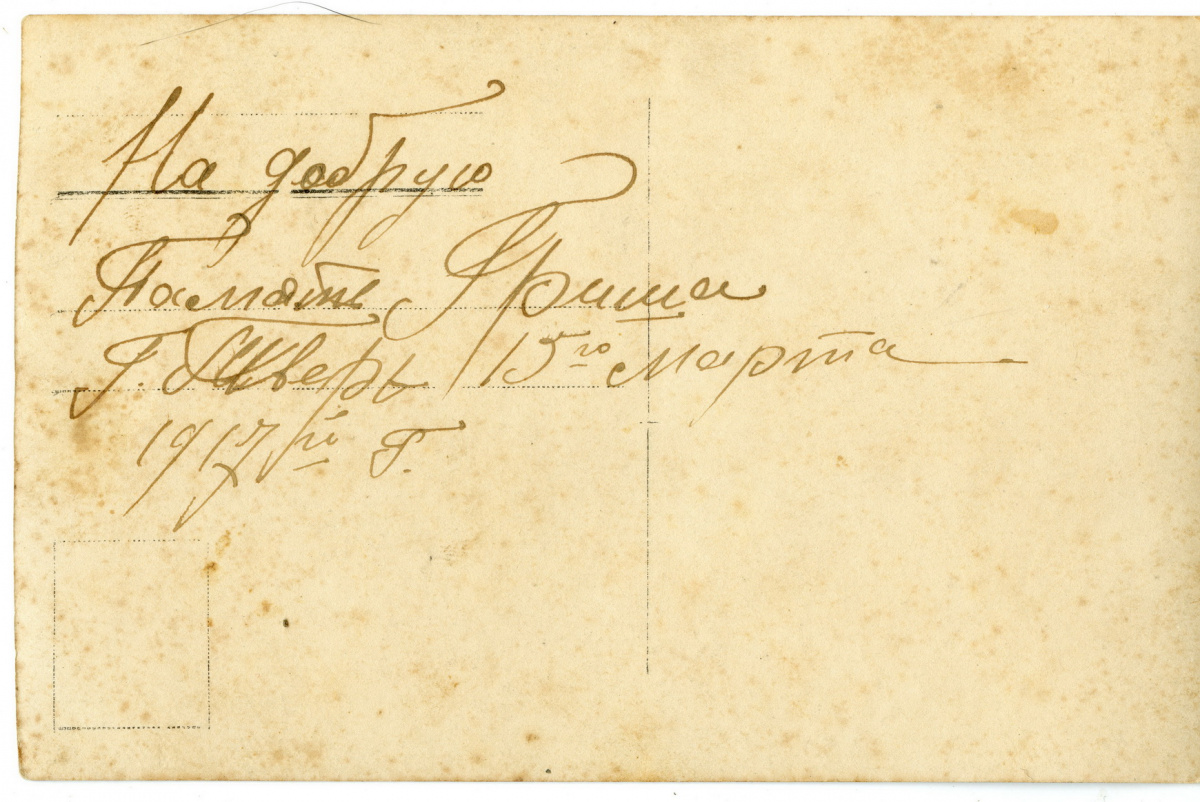 На добрую
Память Гриша
Г. Тверь 15го марта
1917 й г.